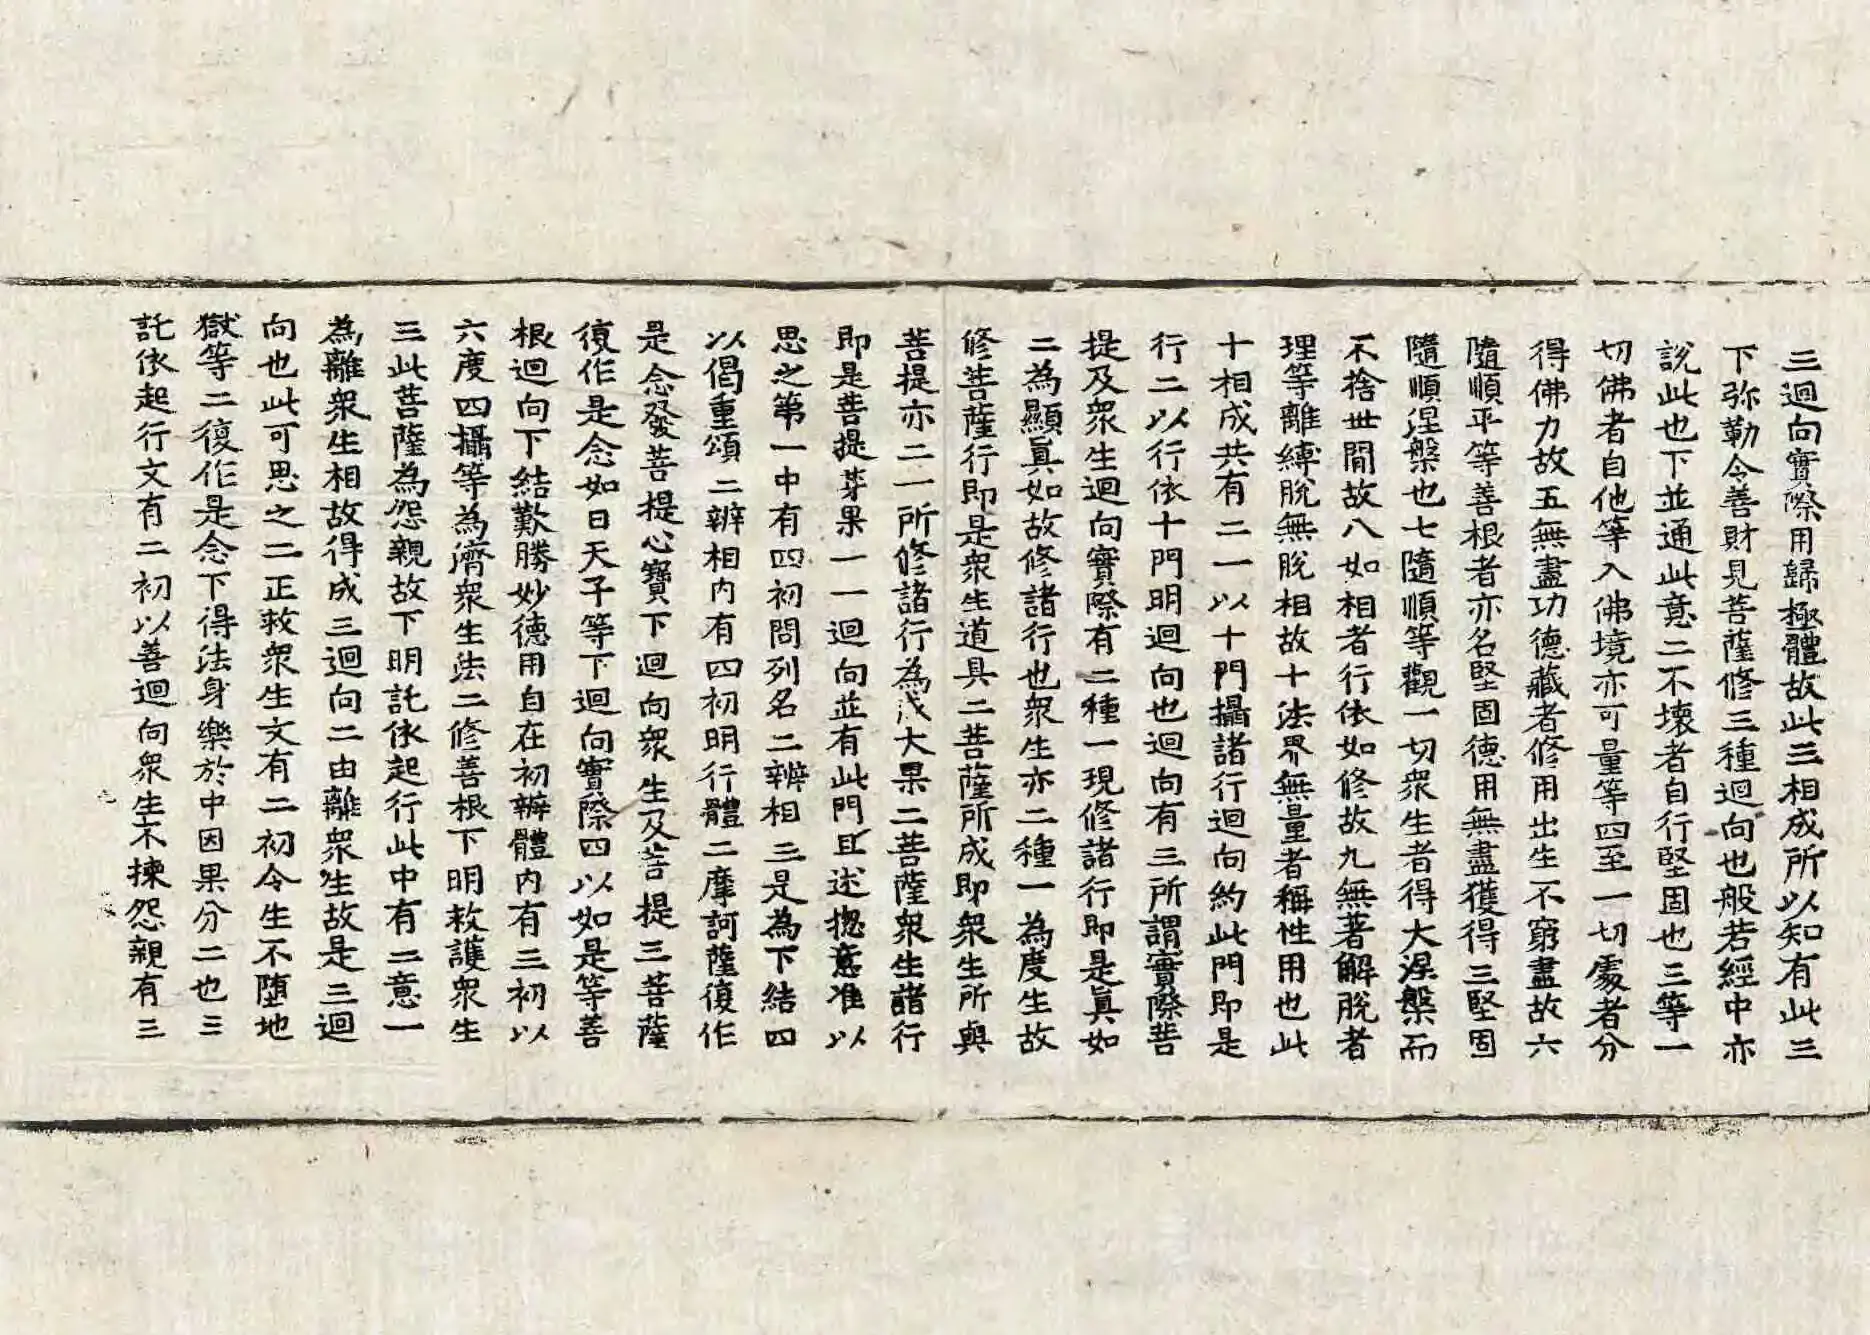 三迴向實際用歸極體故此三相成所以知有此三
下弥勒令善財見菩薩修三種迴向也般若經中亦
說此也下並通此意二不壞者自行堅固也三等一
切佛者自他等入佛境亦可量等四至一切處者分
得佛力故五無盡功德藏者修用出生不窮盡故六
隨順平等善根者亦名堅固德用無盡獲得三堅固
隨順涅槃也七隨順等觀一切衆生者得大涅槃而
不捨世間故八如相者行依如修故九無著解脫者
理等離縛脫無脫相故十法界無量者稱性用也此
十相成共有二一以十門攝諸行迴向約此門即是
行二以行依十門明迴向也迴向有三所謂實際菩
提及衆生迴向實際有二種一現修諸行即是真如
二為顯真如故修諸行也衆生亦二種一為度生故
修菩薩行即是衆生道具二菩薩所成即衆生所與
菩提亦二一所修諸行為成大果二菩薩衆生諸行
即是菩提芽果一一迴向並有此門且述揔意准以
思之第一中有四初問列名二辨相三是為下結四
以偈重頌二辨相內有四初明行體二摩訶薩復作
是念發菩提心寶下迴向衆生及菩提三菩薩
復作是念如日天子等下迴向實際四以如是等善
根迴向下結歎勝妙德用自在初辨體內有三初以
六度四攝等為濟衆生法二修善根下明救護衆生
三此菩薩為怨親故下明託依起行此中有二意一
為離衆生相故得成三迴向二由離衆生故是三迴
向也此可思之二正救衆生文有二初令生不堕地
獄等二復作是念下得法身樂於中因果分二也三
託依起行文有二初以善迴向衆生不揀怨親有三